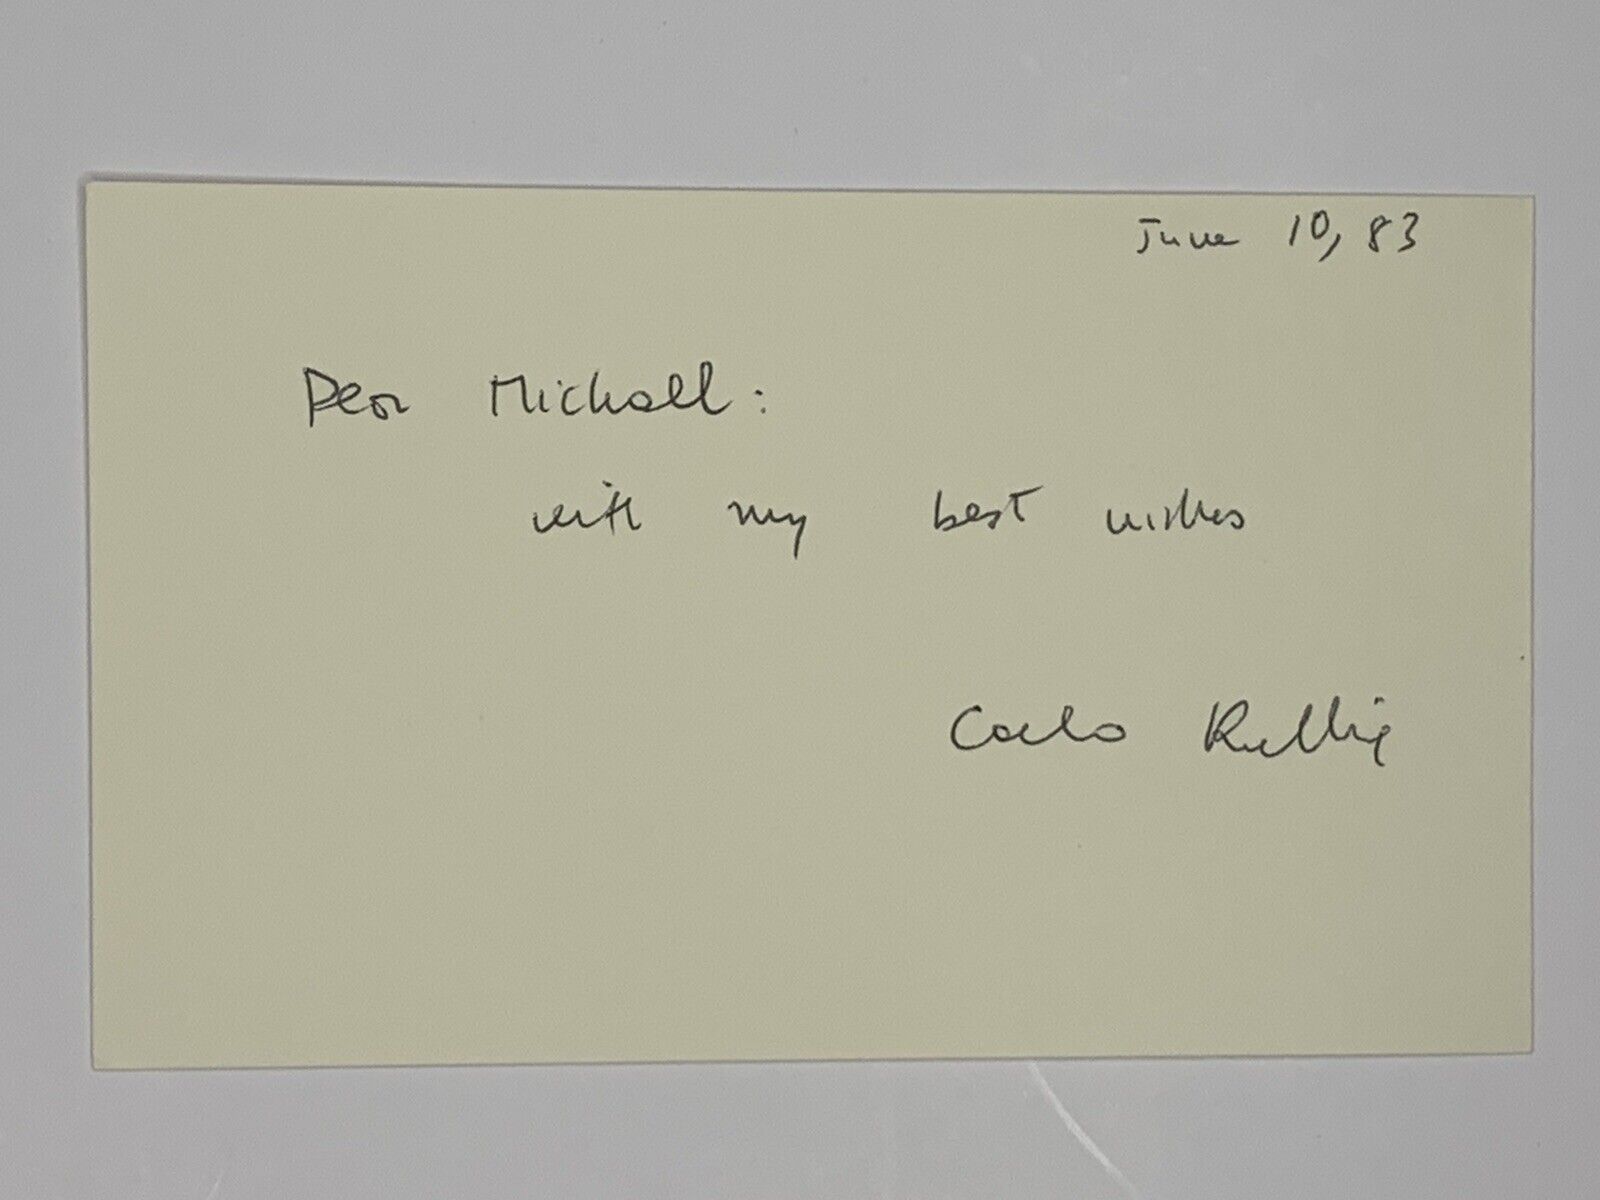 June 10, 83
Dear Michael:
with my best wishes
Carlo Rubbia